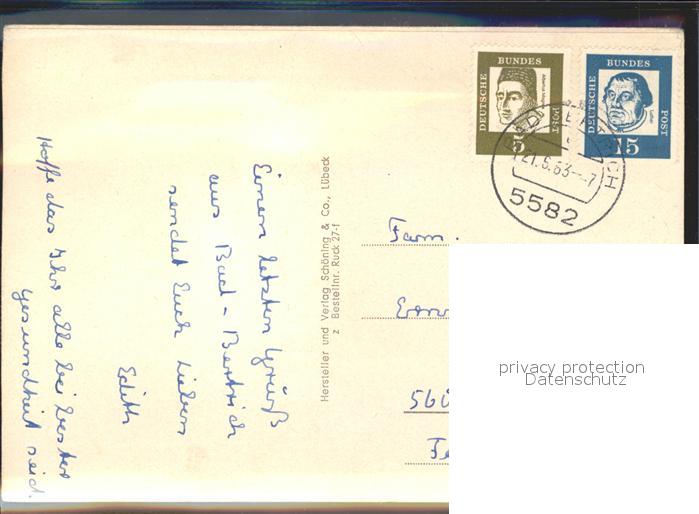 Einen letzten Gruß
aus Bad-Bertrich
sendet Euch Lieben
Edith
Hoffe das Ihr alle bei bester
Gesundheit seid.
Hersteller und Verlag Schöning & Co., Lübeck
z Bestellnr. Ruck 27-f
DEUTSCHE BUNDES POST
Albertus Magnus
5
DEUTSCHE BUNDES POST
Luther
15
21.5.63--7
5582
Fam.
privacy protection
Datenschutz